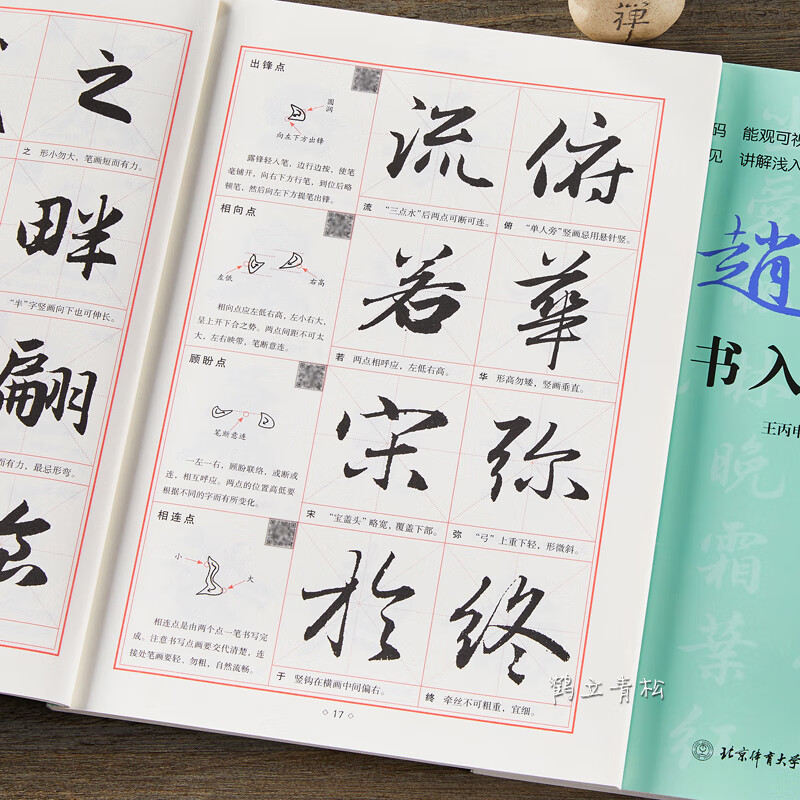 禅
之
之 形小勿大，笔画短而有力。
畔
“半”字竖画向下也可伸长。
翩
而有力，最忌形弯。
念
出锋点
圆润
向左下方出锋
露锋轻入笔，边行边按，使笔
毫铺开，向右下方行笔，到位后略
顿笔，然后向左下方提笔出锋。
流
流 “三点水”后两点可断可连。
俯
俯 “单人旁”竖画忌用悬针竖。
相向点
左低
右高
相向点应左低右高，左小右大，
呈上开下合之势。两点间距不可太
大，左右映带，笔断意连。
若
若 两点相呼应，左低右高。
華
华 形高勿矮，竖画垂直。
顾盼点
笔断意连
一左一右，顾盼联络，或断或
连，相互呼应。两点的位置高低要
根据不同的字而有所变化。
宋
宋 “宝盖头”略宽，覆盖下部。
弥
弥 “弓”上重下轻，形微斜。
相连点
小
大
相连点是由两个点一笔书写完
成。注意书写点画要交代清楚，连
接处笔画要轻、勿粗，自然流畅。
於
于 竖钩在横画中间偏右。
终
终 牵丝不可粗重，宜细。
17
码 能观可视
见 讲解浅入
趙
书入
王丙申
晚
霜
葉
红
北京体育大学
鹤立青松